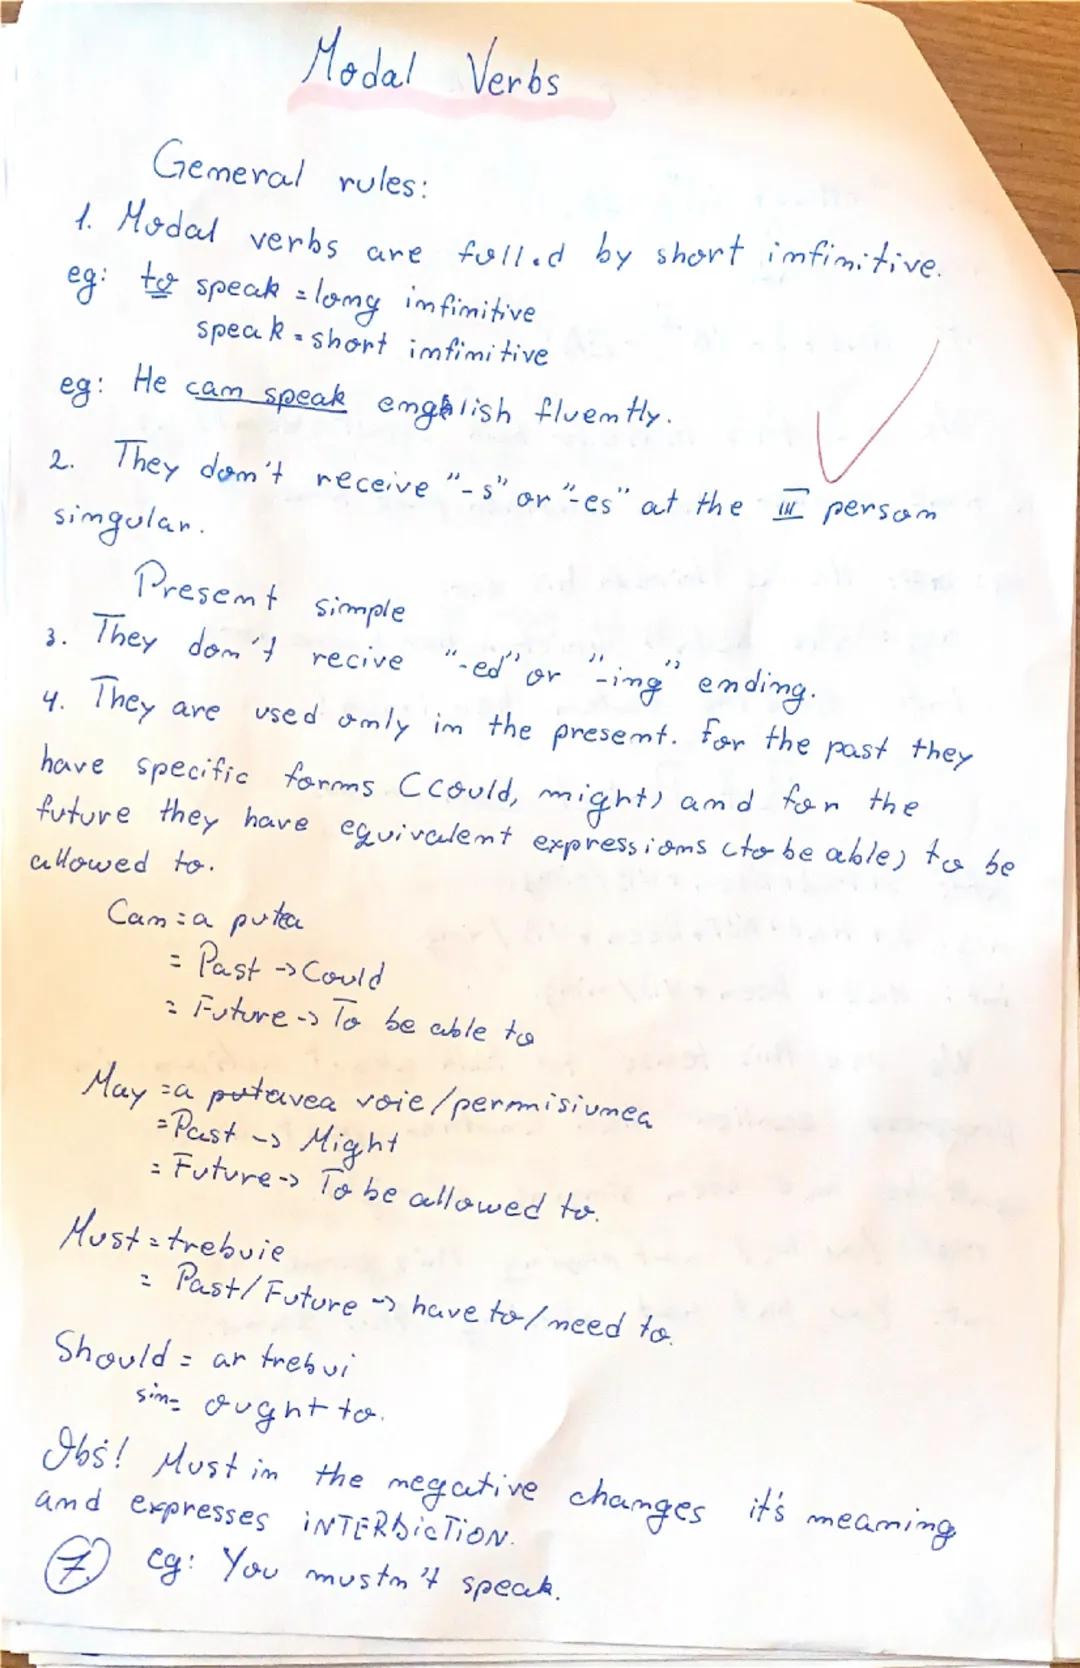 Modal Verbs
General rules:
1. Modal verbs are foll.d by short infinitive.
eg: to speak = long infinitive
speak = short infinitive
eg: He can speak english fluently.
2. They don't receive "-s" or "-es" at the III person
singular.
Present simple
3. They don't recive "-ed" or "-ing" ending.
4. They are used only in the present. For the past they
have specific forms (could, might) and for the
future they have equivalent expressions (to be able) to be
allowed to.
Can = a putea
= Past -> Could
= Future -> To be able to
May = a putavea voie/permisiunea
= Past -> Might
= Future -> To be allowed to.
Must = trebuie
= Past/Future -> have to/need to.
Should = ar trebui
sin = ought to.
Obs! Must in the negative changes it's meaning
and expresses iNTERDicTiON.
7. eg: You mustn't speak.